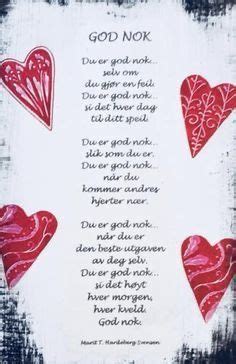 GOD NOK
Du er god nok...
selv om
du gjør en feil.
Du er god nok...
si det hver dag
til ditt speil.
Du er god nok...
slik som du er.
Du er god nok...
når du
kommer andres
hjerter nær.
Du er god nok...
når du er
den beste utgaven
av deg selv.
Du er god nok...
si det høyt
hver morgen,
hver kveld.
God nok.
Marit T. Hardeberg Svensen